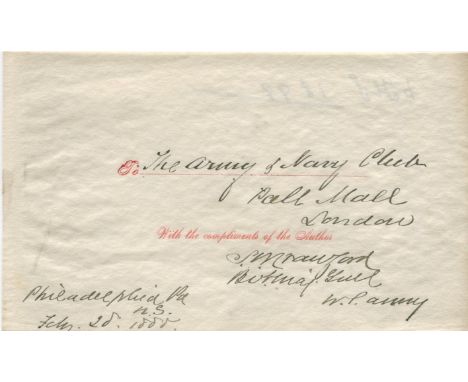 To The Army & Navy Club
Pall Mall
London
With the compliments of the Author
S.W. Crawford
Bt. Maj. Genl
U.S. Army
Philadelphia Pa
U.S.
Feby. 28. 1888.